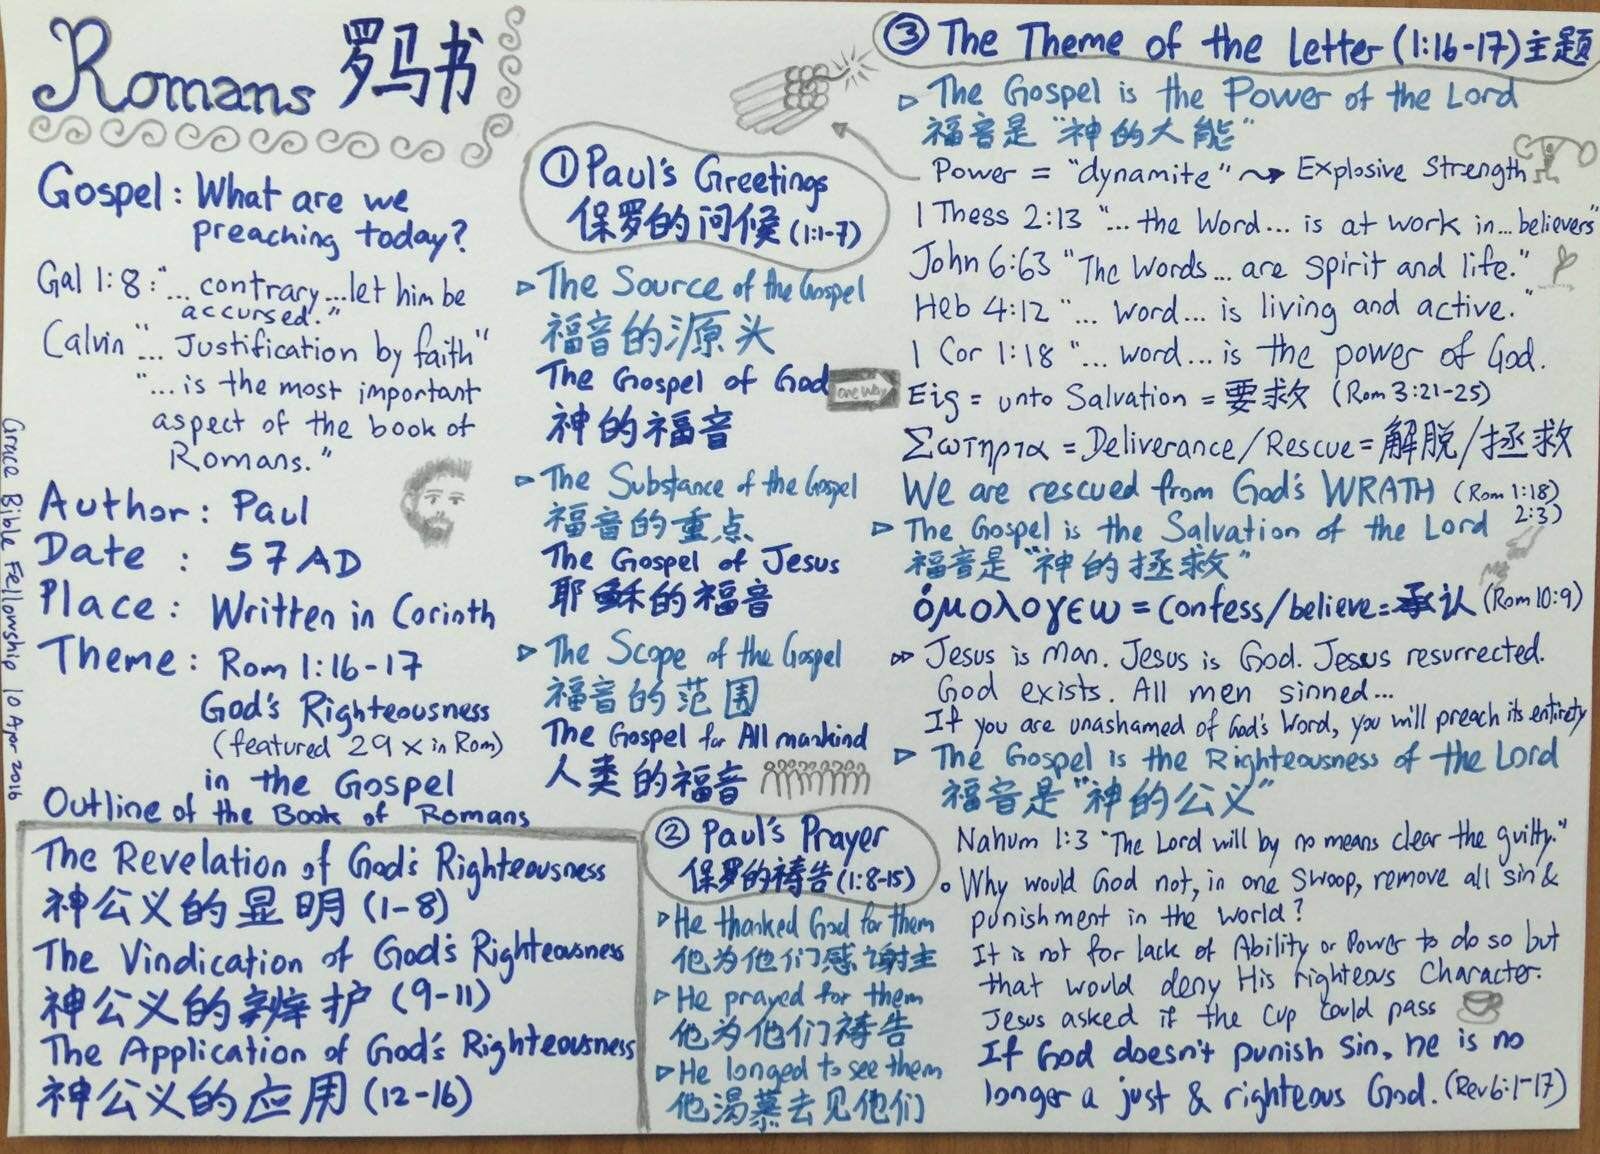 Romans 罗马书
Gospel: What are we
preaching today?
Gal 1:8: "... contrary...let him be
accursed."
Calvin "... Justification by faith"
"... is the most important
aspect of the book of
Romans."
Author: Paul
Date : 57 AD
Place: Written in Corinth
Theme: Rom 1:16-17
God's Righteousness
(featured 29 x in Rom)
in the Gospel
Outline of the Book of Romans
The Revelation of God's Righteousness
神公义的显明 (1-8)
The Vindication of God's Righteousness
神公义的辨护 (9-11)
The Application of God's Righteousness
神公义的应用 (12-16)
Grace Bible Fellowship 10 Apr 2016
① Paul's Greetings
保罗的问候 (1:1-7)
▷ The Source of the Gospel
福音的源头
The Gospel of God
one way
神的福音
▷ The Substance of the Gospel
福音的重点
The Gospel of Jesus
耶稣的福音
▷ The Scope of the Gospel
福音的范围
The Gospel for All mankind
人类的福音
② Paul's Prayer
保罗的祷告 (1:8-15)
▷ He thanked God for them
他为他们感谢主
▷ He prayed for them
他为他们祷告
▷ He longed to see them
他渴慕去见他们
③ The Theme of the Letter (1:16-17) 主题
▷ The Gospel is the Power of the Lord
福音是"神的大能"
Power = "dynamite" → Explosive Strength
1 Thess 2:13 "... the Word... is at work in... believers"
John 6:63 "The Words... are spirit and life."
Heb 4:12 "... word... is living and active."
1 Cor 1:18 "... word... is the power of God.
Eig = unto Salvation = 要救 (Rom 3:21-25)
Σωτηρτα = Deliverance/Rescue = 解脱/拯救
We are rescued from God's WRATH (Rom 1:18)
2:3)
▷ The Gospel is the Salvation of the Lord
福音是"神的拯救"
όμολογεω = Confess/believe = 承认 (Rom 10:9)
▷▷ Jesus is man. Jesus is God. Jesus resurrected.
God exists. All men sinned...
If you are unashamed of God's Word, you will preach its entirety
▷ The Gospel is the Righteousness of the Lord
福音是"神的公义"
Nahum 1:3 "The Lord will by no means clear the guilty."
• Why would God not, in one swoop, remove all sin &
punishment in the world?
It is not for lack of Ability or Power to do so but
that would deny His righteous Character.
Jesus asked if the cup could pass
If God doesn't punish sin, he is no
longer a just & righteous God. (Rev 6:1-17)